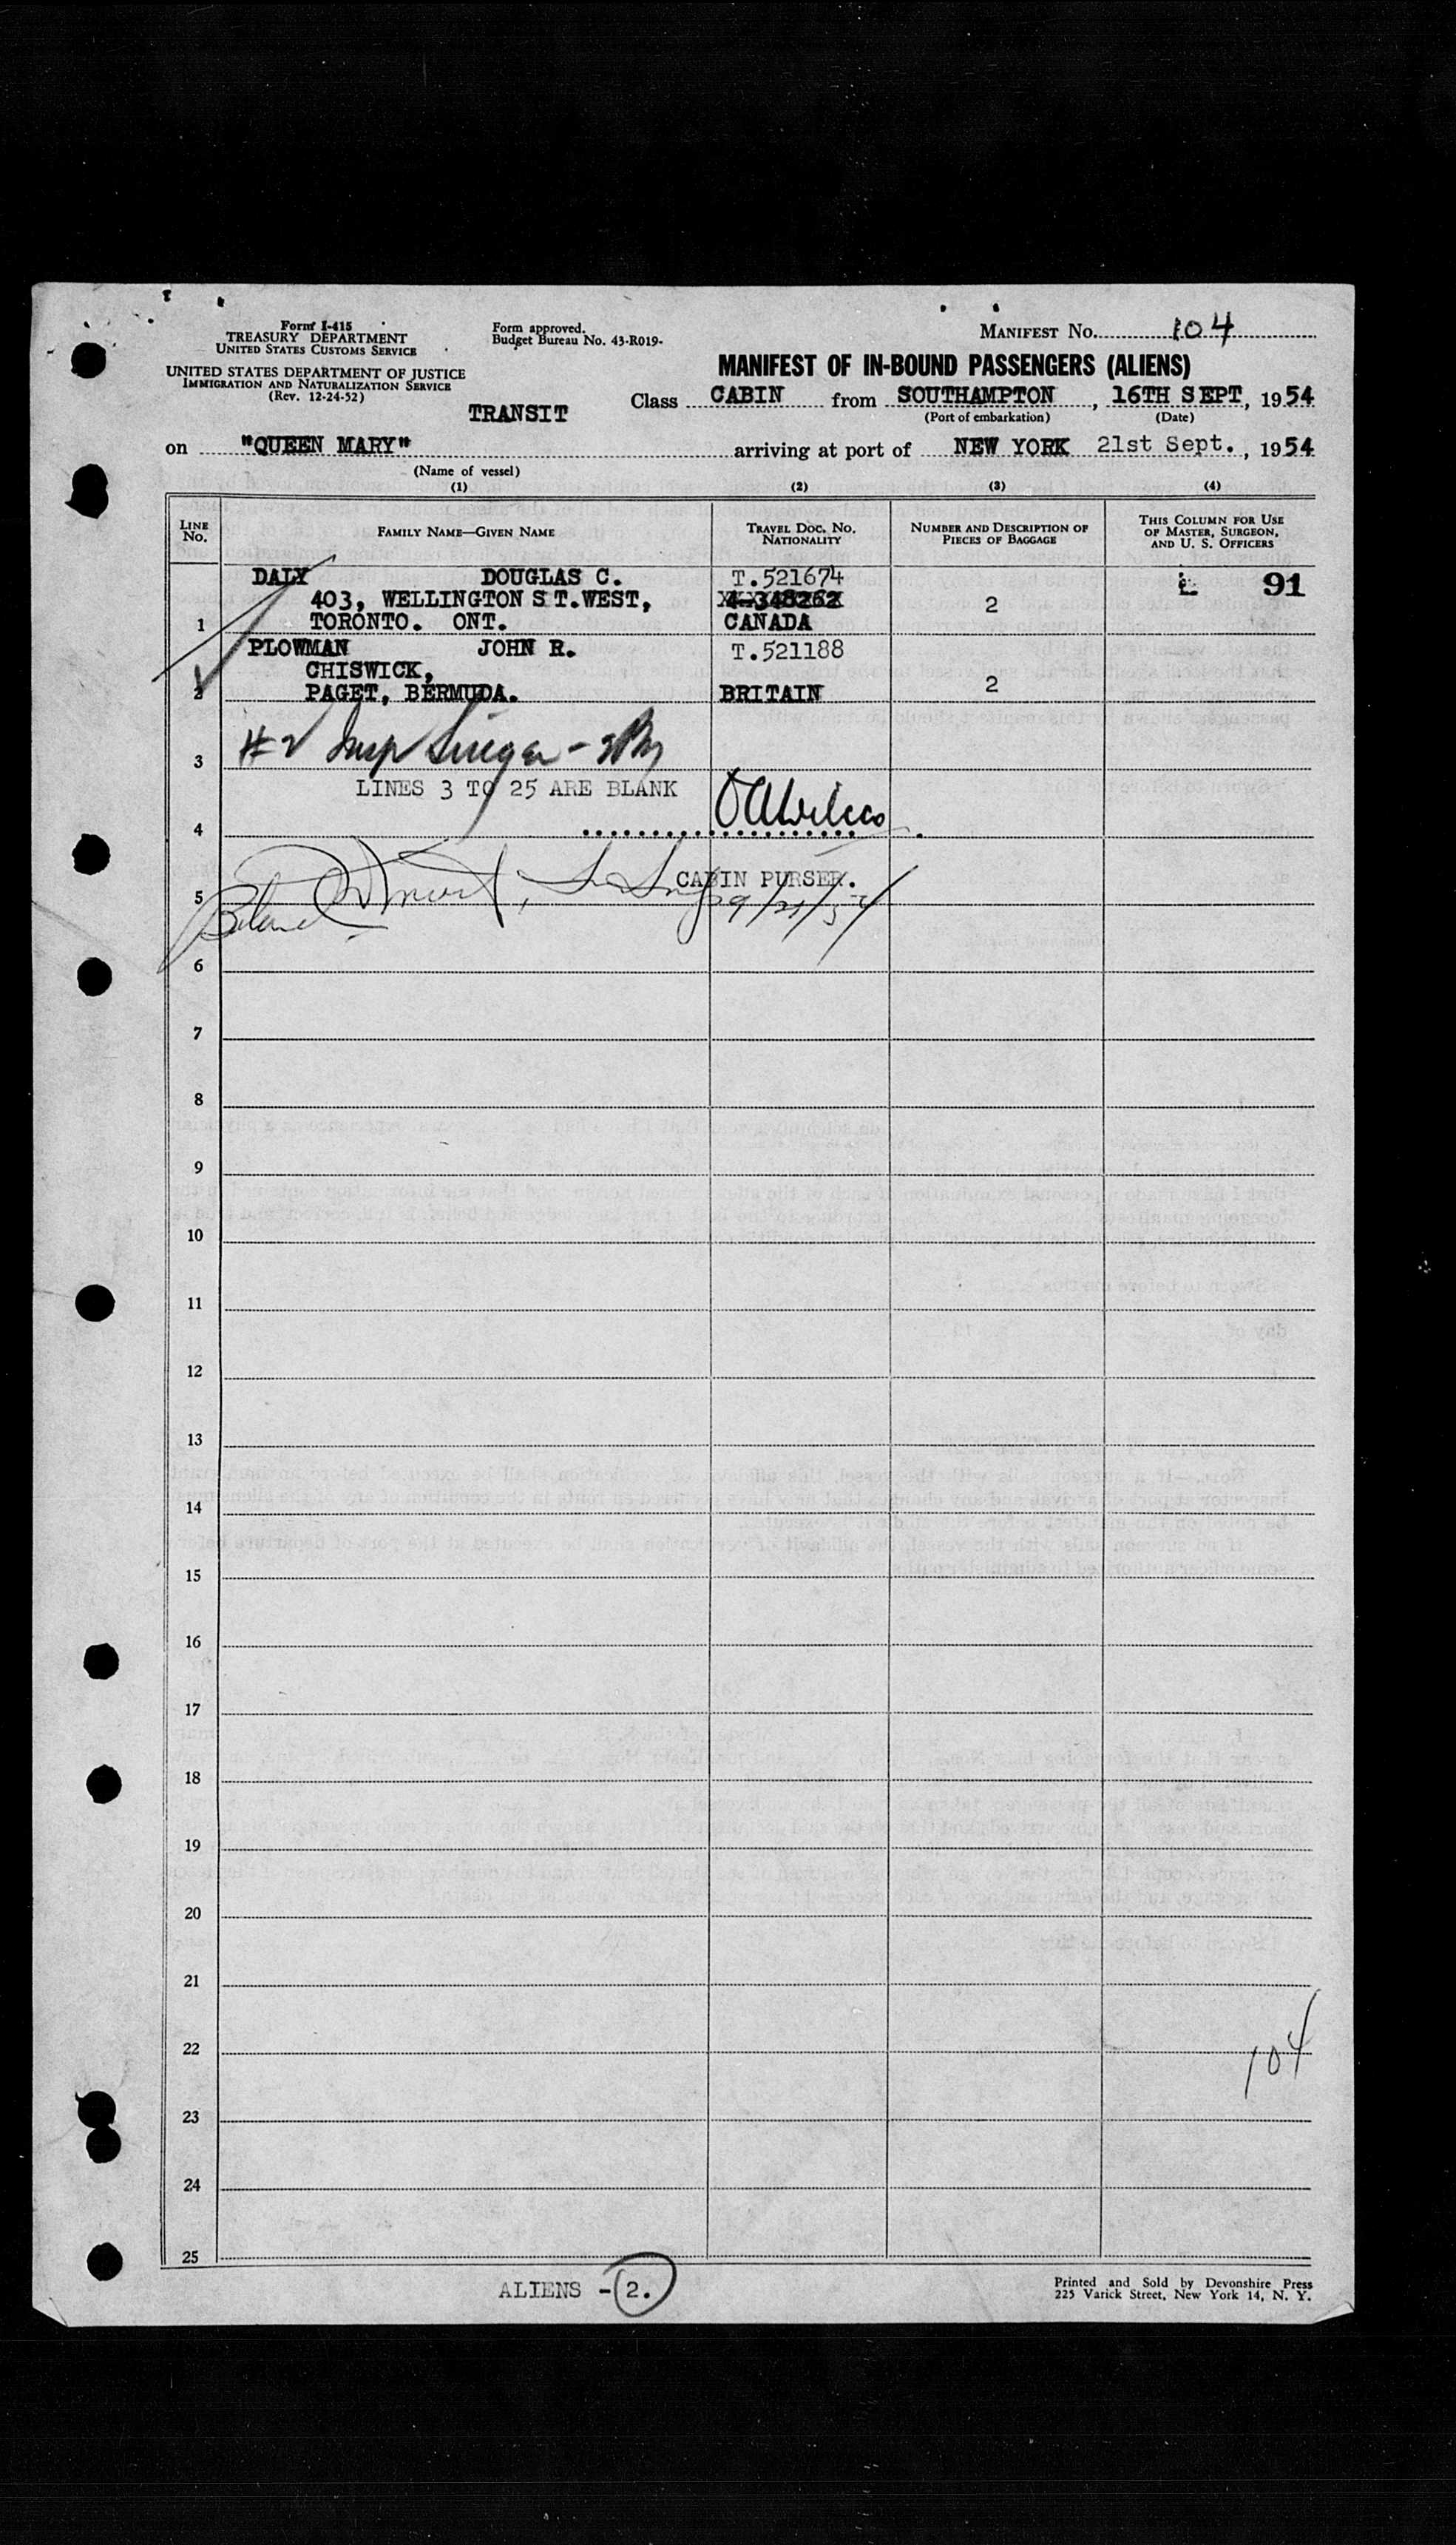 Form I-415
TREASURY DEPARTMENT
UNITED STATES CUSTOMS SERVICE
UNITED STATES DEPARTMENT OF JUSTICE
IMMIGRATION AND NATURALIZATION SERVICE
(Rev. 12-24-52)
Form approved.
Budget Bureau No. 43-R019-
MANIFEST No. 104
MANIFEST OF IN-BOUND PASSENGERS (ALIENS)
TRANSIT
Class CABIN from SOUTHAMPTON, 16TH SEPT, 1954
(Port of embarkation) (Date)
on "QUEEN MARY" arriving at port of NEW YORK 21st Sept., 1954
(Name of vessel)
(1) (2) (3) (4)
LINE No. FAMILY NAME—GIVEN NAME TRAVEL DOC. No. NATIONALITY NUMBER AND DESCRIPTION OF PIECES OF BAGGAGE THIS COLUMN FOR USE OF MASTER, SURGEON, AND U. S. OFFICERS
DALY DOUGLAS C. T.521674 91
403, WELLINGTON ST.WEST, 4-348262 2
1 TORONTO. ONT. CANADA
PLOWMAN JOHN R. T.521188
CHISWICK, 2
2 PAGET, BERMUDA. BRITAIN
#2 Insp
3
LINES 3 TO 25 ARE BLANK
4
CABIN PURSER.
5 9/21/54
6
7
8
9
10
11
12
13
14
15
16
17
18
19
20
21
22
104
23
24
25
ALIENS - 2.
Printed and Sold by Devonshire Press
225 Varick Street, New York 14, N. Y.